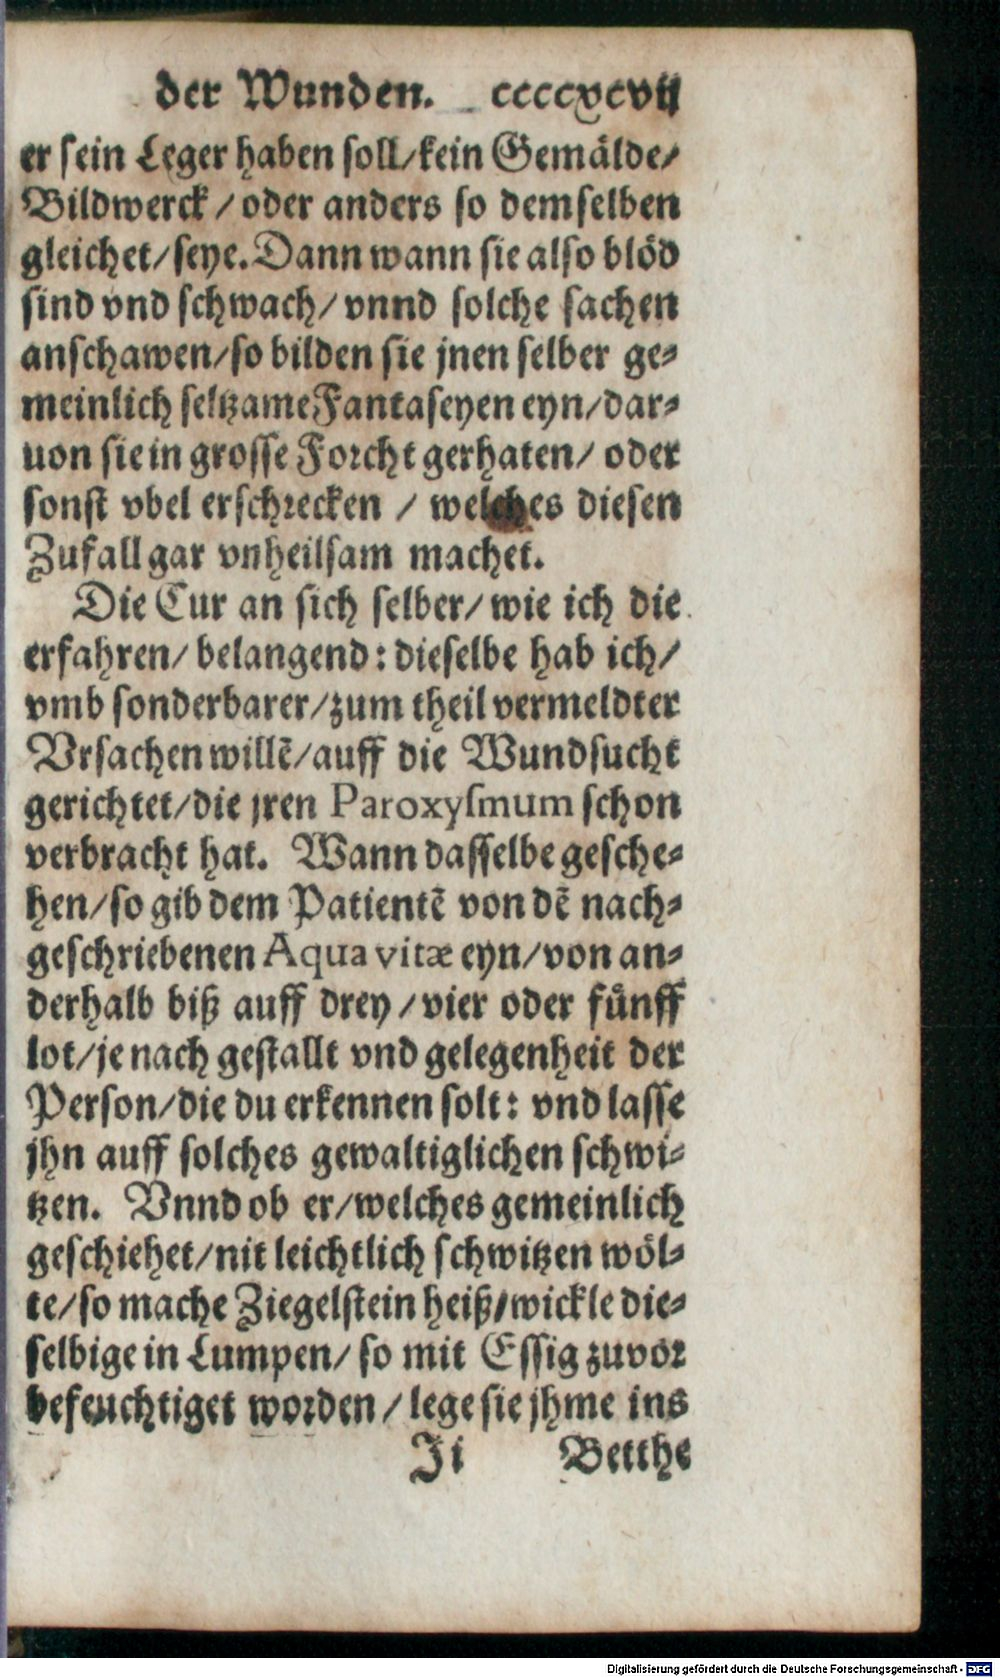 der Wunden. ccccxcvij
er sein Leger haben soll/kein Gemälde/
Bildwerck/oder anders so demselben
gleichet/seye. Dann wann sie also blöd
sind vnd schwach/vnnd solche sachen
anschawen/so bilden sie jnen selber ge-
meinlich seltzame Fantaseyen eyn/dar-
uon sie in grosse Forcht gerhaten/oder
sonst vbel erschrecken/welches diesen
Zufall gar vnheilsam machet.
Die Cur an sich selber/wie ich die
erfahren/belangend: dieselbe hab ich/
vmb sonderbarer/zum theil vermeldter
Vrsachen willẽ/auff die Wundsucht
gerichtet/die jren Paroxysmum schon
verbracht hat. Wann dasselbe gesche-
hen/so gib dem Patientẽ von dẽ nach-
geschriebenen Aqua vitæ eyn/von an-
derhalb biß auff drey/vier oder fünff
lot/je nach gestallt vnd gelegenheit der
Person/die du erkennen solt: vnd lasse
jhn auff solches gewaltiglichen schwi-
tzen. Vnnd ob er/welches gemeinlich
geschiehet/nit leichtlich schwitzen wöl-
te/so mache Ziegelstein heiß/wickle die-
selbige in Lumpen/so mit Essig zuvor
befeuchtiget worden/lege sie jhme ins
Ji Betthe
Digitalisierung gefördert durch die Deutsche Forschungsgemeinschaft - DFG